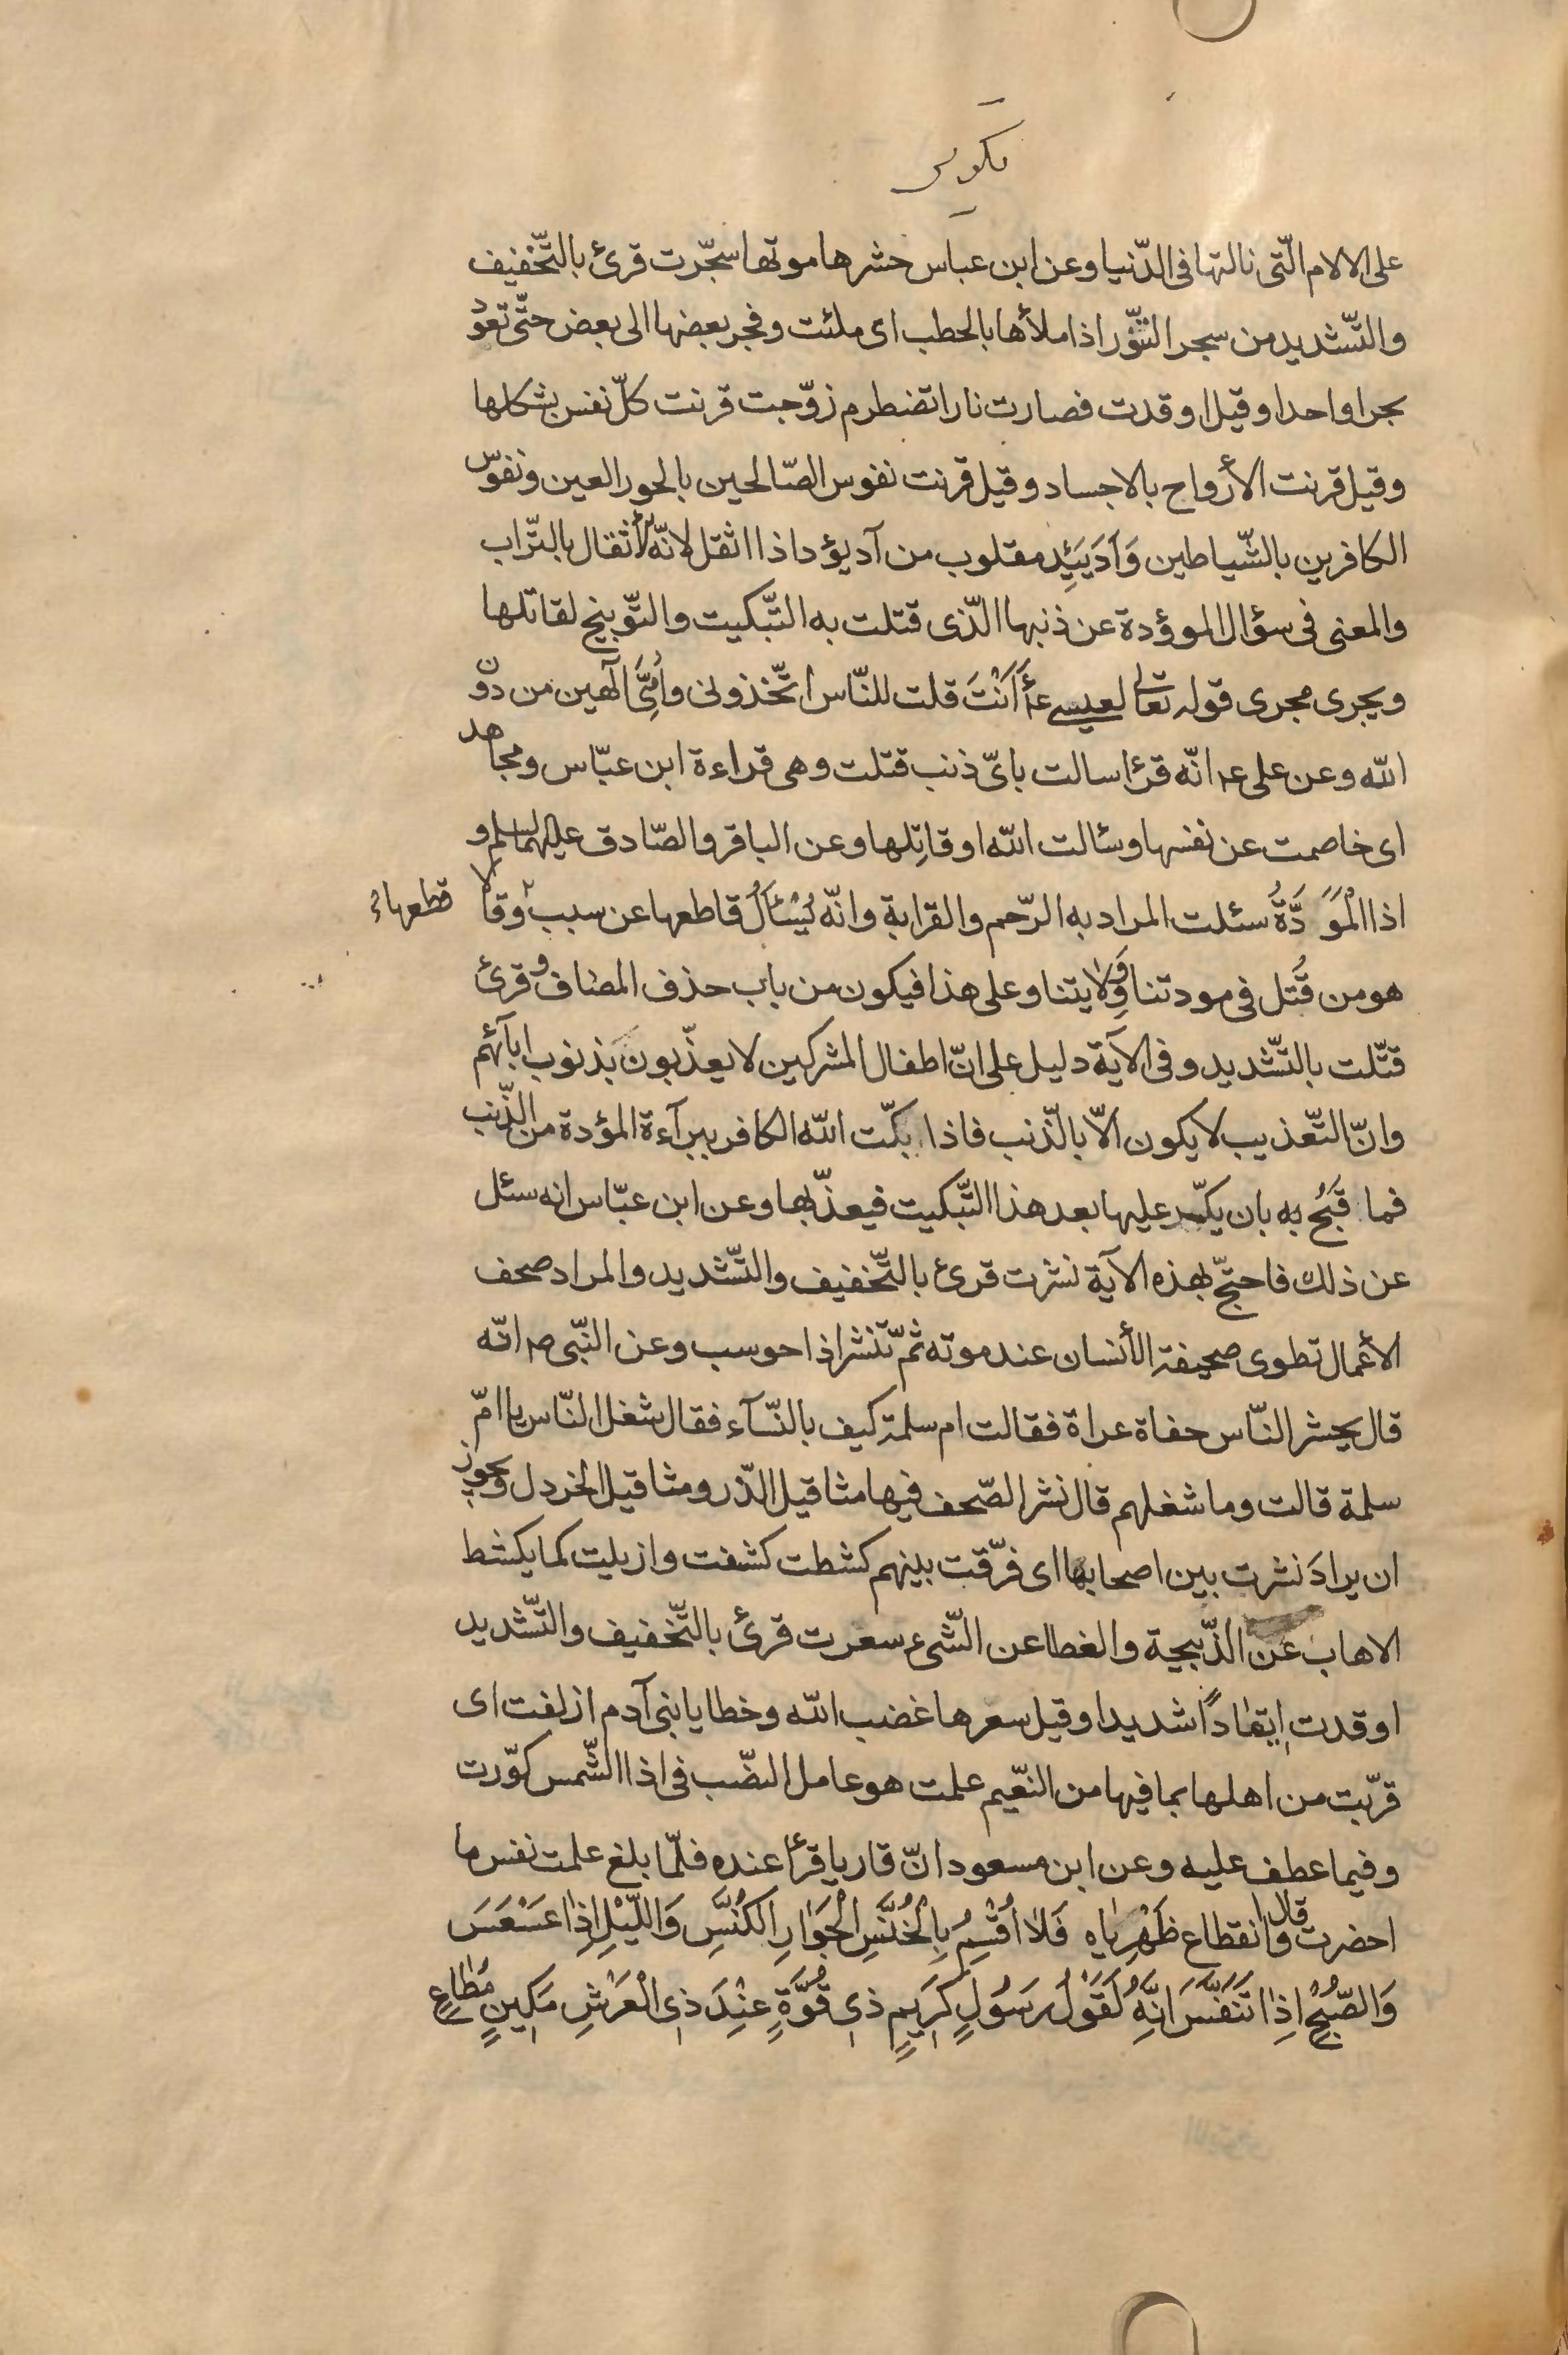 تكوير
على الالام الّتى نالتها فى الدّنيا وعن ابن عباس حشرها موتها سجّرت قرئ بالتّخفيف
والتّشديد من سجر التنّور اذا ملأها بالحطب اى ملئت وفجر بعضها الى بعض حتّى تعود
بحرا واحدا وقيل اوقدت فصارت نارا تضطرم زوّجت قرنت كلّ نفس بشكلها
وقيل قرنت الأرواح بالاجساد وقيل قرنت نفوس الصّالحين بالحور العين ونفوس
الكافرين بالشّياطين وَأدَ يَئِد مقلوب من آد يؤد اذا اثقل لانّه اثقال بالتّراب
والمعنى فى سؤال الموؤدة عن ذنبها الّذى قتلت به التّبكيت والتّوبيخ لقاتلها
ويجرى مجرى قوله تعالى لعيسى ع أَاَنْتَ قلت للنّاس اتّخذونى واُمِّىَ آلهين من دون
الله وعن على ع انّه قرئ سالت باىّ ذنب قتلت وهى قراءة ابن عبّاس ومجاهد
اى خاصمت عن نفسها وسئالت الله او قاتِلها وعن الباقر والصّادق عليهما السلم و
اذا الْمَوَدَّةُ سئلت المراد به الرّحم والقرابة وانّه يُسْئَلُ قاطعها عن سبب وقالا
قطعها
هو من قُتل فى مودتنا وَوِلايتنا وعلى هذا فيكون من باب حذف المضاف و قرئ
قتّلت بالتّشديد وفى الآية دليل على انّ اطفال المشركين لا يعذّبون بذنوب ابآئهم
وانّ التّعذيب لا يكون الّا بالذّنب فاذا بكّت الله الكافر ببرآءة المؤدة من الذّنب
فما قَبُح به بان يكرّ عليها بعد هذا التّبكيت فيعذّبها وعن ابن عبّاس انه سئل
عن ذلك فاحتجّ بهذه الآية نشرت قرئ بالتّخفيف والتّشديد والمراد صحف
الأعمال تطوى صحيفة الأنسان عند موته ثمّ تنشر اذا حوسب وعن النّبى ص انّه
قال يحشر النّاس حفاة عراة فقالت ام سلمة كيف بالنّسآء فقال شغل النّاس يا امّ
سلمة قالت وما شغلهم قال نشر الصّحف فيها مثاقيل الذّر ومثاقيل الخردل ويجوز
ان يرادَ نشرت بين اصحابها اى فرّقت بينهم كشطت كشفت وازيلت كما يكشط
الاهاب عن الذّبيحة والغطا عن الشّىء سعرت قرئ بالتّخفيف والتّشديد
اوقدت اِيقاداً شديدا وقيل سعرها غضب الله وخطايا بنى آدم ازلفت اى
قربّت من اهلها بما فيها من النعّيم علمت هو عامل النصّب فى اذا الشّمس كوّرت
وفيما عطف عليه وعن ابن مسعود انّ قاريا قرأ عنده فلمّا بلغ علمت نفس ما
احضرت قال وا انقطاع ظَهْرِياه فَلا اُقْسِمُ بِالْخُنَّسِ الْجَوَارِ الْكُنَّسِ وَاللَّيْلِ اِذا عَسْعَسَ
وَالصُّبْحِ اِذا تَنَفَّسَ اِنَّهُ لَقَوْلُ رَسُولٍ كَرِيمٍ ذى قُوَّةٍ عِنْدَ ذِى الْعَرْشِ مَكِينٍ مُطاعٍ